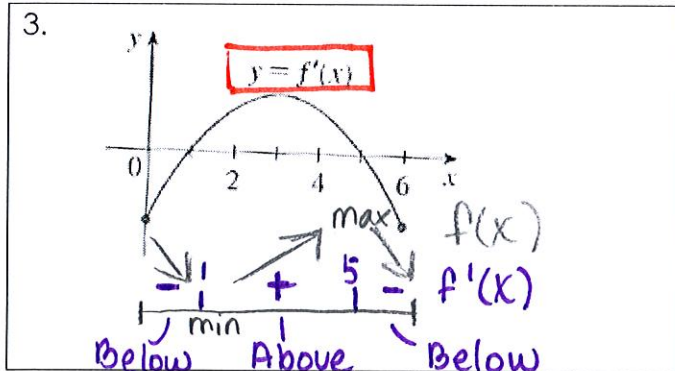 3.
y
y = f'(x)
0 2 4 6 x
max f(x)
- 1 + 5 - f'(x)
min
Below Above Below